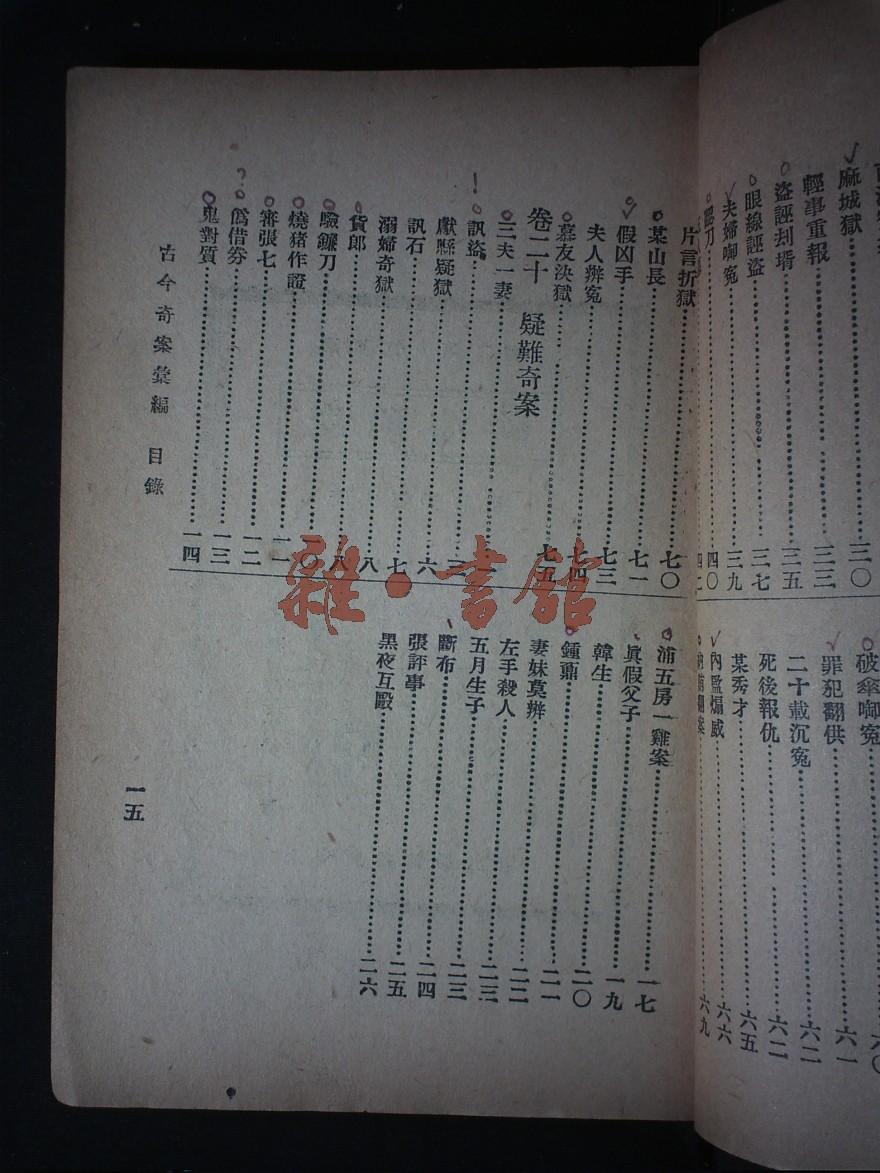 麻城獄 三〇
輕事重報 三三
盜誣刦壻 三五
眼線誣盜 三七
夫婦啣冤 三九
刀 四〇
四二
破傘啣冤 六〇
罪犯翻供 六一
二十載沉冤 六二
死後報仇 六二
某秀才 六五
內監煽威 六六
案 六九
片言折獄 七〇
某山長 七一
假凶手 七三
夫人辨冤 七四
幕友決獄 七五
卷二十 疑難奇案
三夫一妻
訊盜 三
獻縣疑獄 六
訊石 七
溺婦奇獄 八
貨郎 八
驗鐮刀 一〇
燒猪作證 一一
審張七 一二
僞借券 一三
鬼對質 一四
浦五房一雞案 一七
眞假父子 一九
韓生 二〇
鍾鼐 二一
妻妹莫辨 二二
左手殺人 二三
五月生子 二三
斷布 二四
張評事 二五
黑夜互毆 二六
古今奇案彙編 目錄
一五
雜·書館